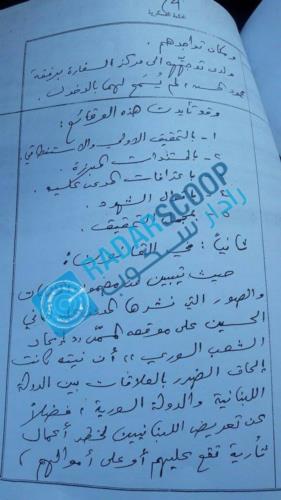 المحكمة العسكرية
ومكان تواجدهم.
ولدى توجهه الى مركز السفارة برفقة
لم يُسمح لهما بالدخول.
وقد تأيدت هذه الوقائع:
١- بالتحقيق الاولي والاستنطاقي.
٢- بالمستندات المبرزة.
باعترافات المدعى عليه.
الشهود.
التحقيق.
RADARSCOOP
رادار سكوب
ثانياً: في القانون:
حيث تبين من
والصور التي نشرها المدعى
الحسين على موقعه المسمى
الشعب السوري، أن نيته كانت
إلحاق الضرر بالعلاقات بين الدولة
اللبنانية والدولة السورية، فضلاً
عن تعريض اللبنانيين لخطر أعمال
ثأرية تقع عليهم أو على أموالهم،